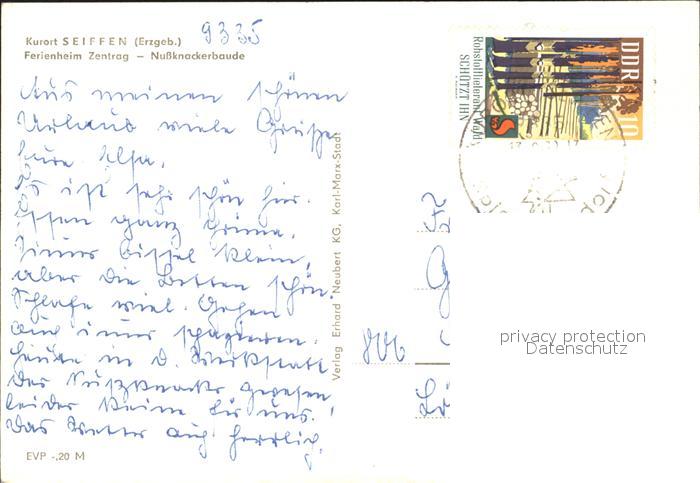 9335
Kurort SEIFFEN (Erzgeb.)
Ferienheim Zentrag – Nußknackerbaude
Aus meinen schönen
Urlaub viele Grüße
Eure Elsa.
Es ist sehr schön hier.
Essen ganz prima.
Zimmer bissel klein,
aber die Betten schön.
Schlafe viel. Gehen
auch immer spazieren.
Heute in d. Werkstatt
der Nußknacker gewesen
leider keine für uns!
Das Wetter auch herrlich
EVP -,20 M
Verlag Erhard Neubert KG, Karl-Marx-Stadt
DDR 10
Rohstofflieferant Wald
SCHÜTZT IHN
806
privacy protection
Datenschutz